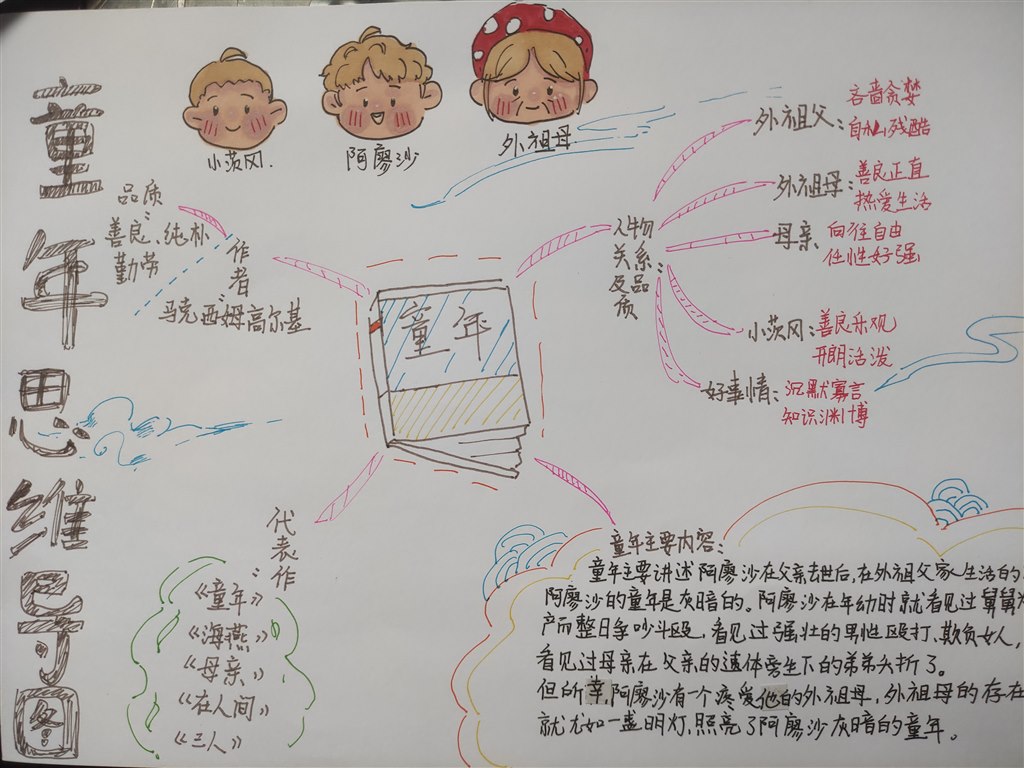 童年思维导图
小茨冈.
阿廖沙
外祖母
品质:
善良、纯朴
勤劳
作者
马克西姆高尔基
童年
人物关系及品质:
外祖父:
吝啬贪婪
自私残酷
外祖母:
善良正直
热爱生活
母亲
向往自由
任性好强
小茨冈:
善良乐观
开朗活泼
好事情:
沉默寡言
知识渊博
代表作:
《童年》
《海燕》
《母亲》
《在人间》
《三人》
童年主要内容:
童年主要讲述阿廖沙在父亲去世后,在外祖父家生活的
阿廖沙的童年是灰暗的。阿廖沙在年幼时就看见过舅舅
产而整日争吵斗殴,看见过强壮的男性殴打、欺负女人,
看见过母亲在父亲的遗体旁生下的弟弟夭折了。
但所幸,阿廖沙有一个疼爱他的外祖母,外祖母的存在
就尤如一盏明灯,照亮了阿廖沙灰暗的童年。